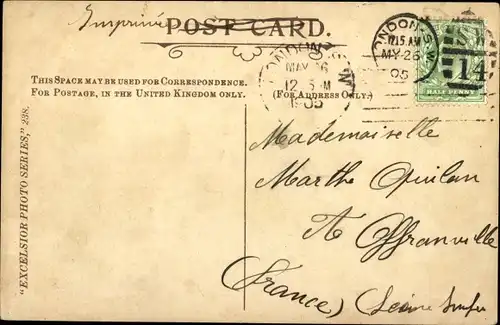 Imprimé
POST CARD.
THIS SPACE MAY BE USED FOR CORRESPONDENCE.
FOR POSTAGE, IN THE UNITED KINGDOM ONLY.
(FOR ADDRESS ONLY.)
"EXCELSIOR PHOTO SERIES," 238.
LONDON S.W
MAY 26
1905
LONDON. S.W
12.15 AM
MY 26
05
14
HALF PENNY
Mademoiselle
Marthe
A Offranville
(France) (Seine Infre)